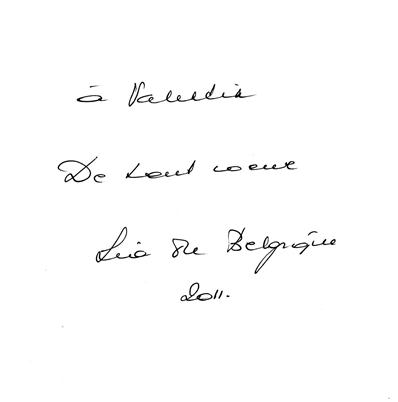 à Valentin
De tout coeur
Léa de Belgique
2011.